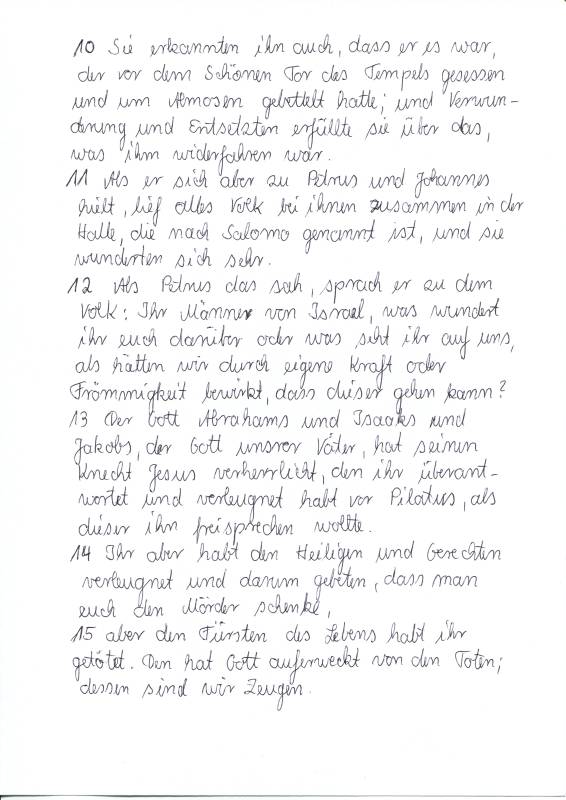 10 Sie erkannten ihn auch, dass er es war,
der vor dem Schönen Tor des Tempels gesessen
und um Almosen gebettelt hatte; und Verwun-
derung und Entsetzten erfüllte sie über das,
was ihm widerfahren war.
11 Als er sich aber zu Petrus und Johannes
hielt, lief alles Volk bei ihnen zusammen in der
Halle, die nach Salomo genannt ist, und sie
wunderten sich sehr.
12 Als Petrus das sah, sprach er zu dem
Volk: Ihr Männer von Israel, was wundert
ihr euch darüber oder was seht ihr auf uns,
als hätten wir durch eigene Kraft oder
Frömmigkeit bewirkt, dass dieser gehen kann?
13 Der Gott Abrahams und Isaaks und
Jakobs, der Gott unsrer Väter, hat seinen
Knecht Jesus verherrlicht, den ihr überant-
wortet und verleugnet habt vor Pilatus, als
dieser ihn freisprechen wollte.
14 Ihr aber habt den Heiligen und Gerechten
verleugnet und darum gebeten, dass man
euch den Mörder schenke,
15 aber den Fürsten des Lebens habt ihr
getötet. Den hat Gott auferweckt von den Toten;
dessen sind wir Zeugen.